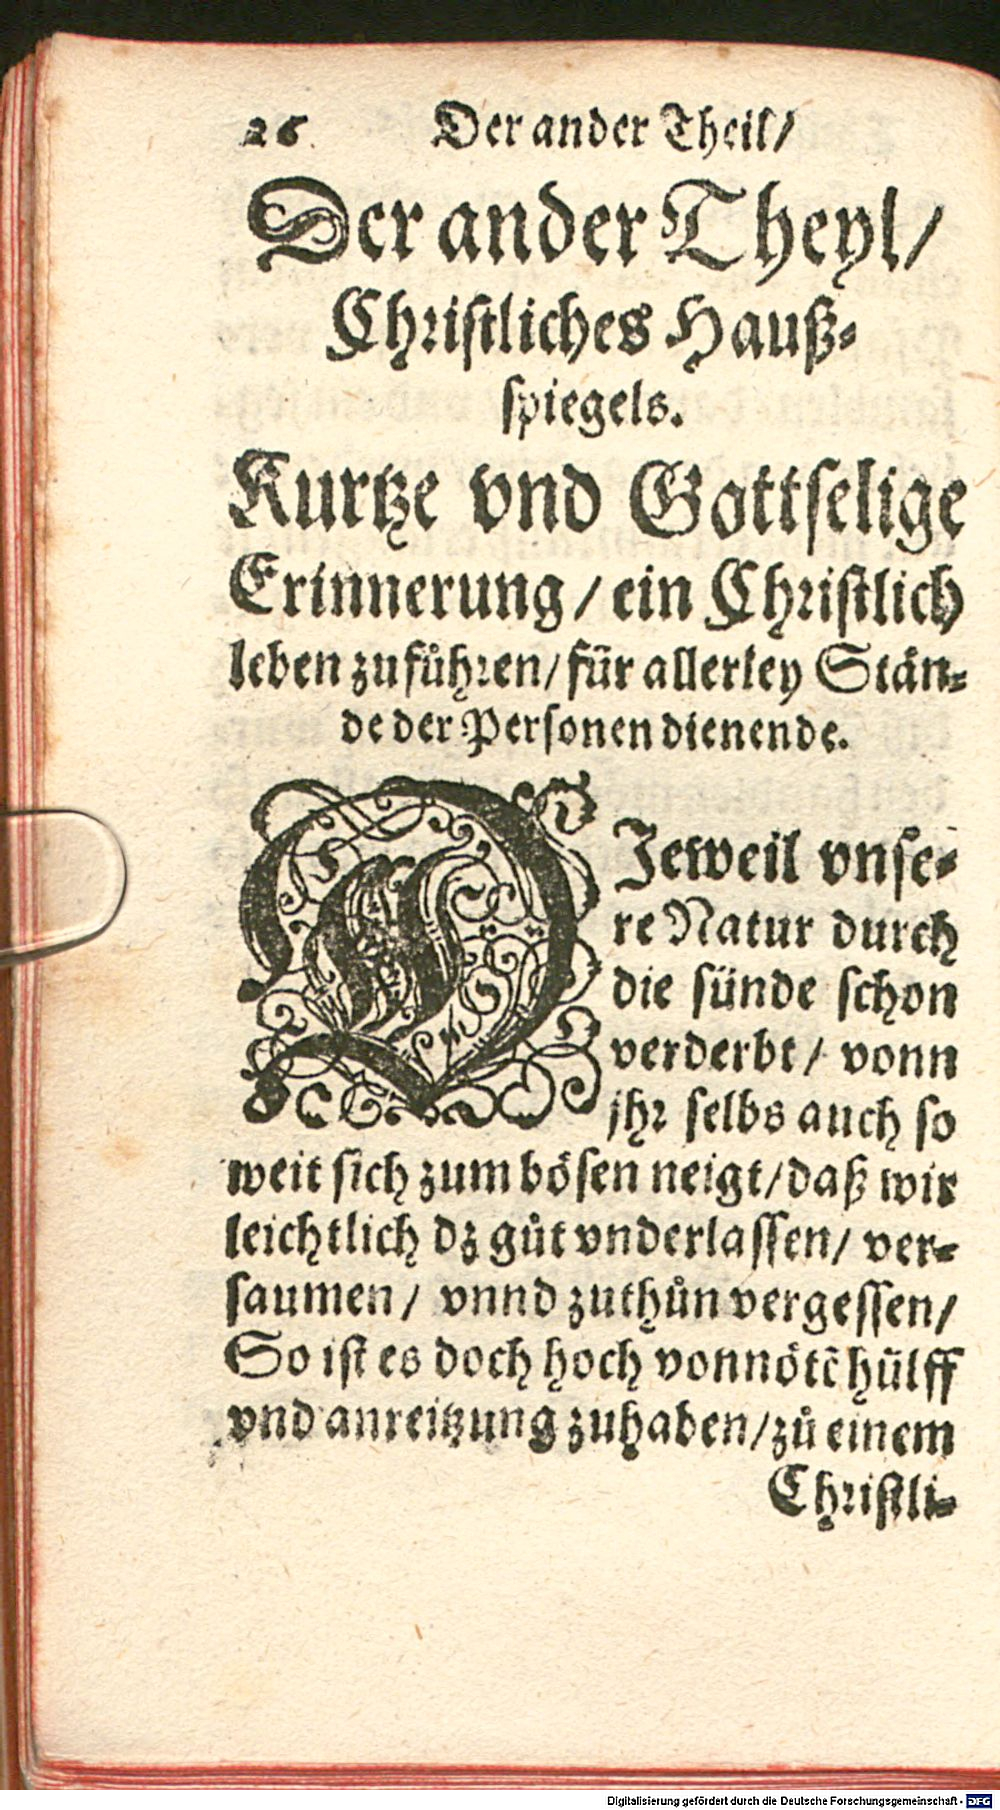 26 Der ander Theil/
Der ander Theyl/
Chriſtliches Hauß⸗
ſpiegels.
Kurtze vnd Gottſelige
Erinnerung/ ein Chriſtlich
leben zufuͤhꝛen/ fuͤr allerley Staͤn⸗
de der Perſonen dienende.
DJeweil vnſe⸗
re Natur durch
die ſuͤnde ſchon
verderbt/ vonn
jhꝛ ſelbs auch ſo
weit ſich zum boͤſen neigt/ daß wir
leichtlich dz guͤt vnderlaſſen/ ver⸗
ſaumen/ vnnd zuthůn vergeſſen/
So iſt es doch hoch vonnoͤtē huͤlff
vnd anreitzung zuhaben/ zů einem
Chꝛiſtli⸗
Digitalisierung gefördert durch die Deutsche Forschungsgemeinschaft - DFG